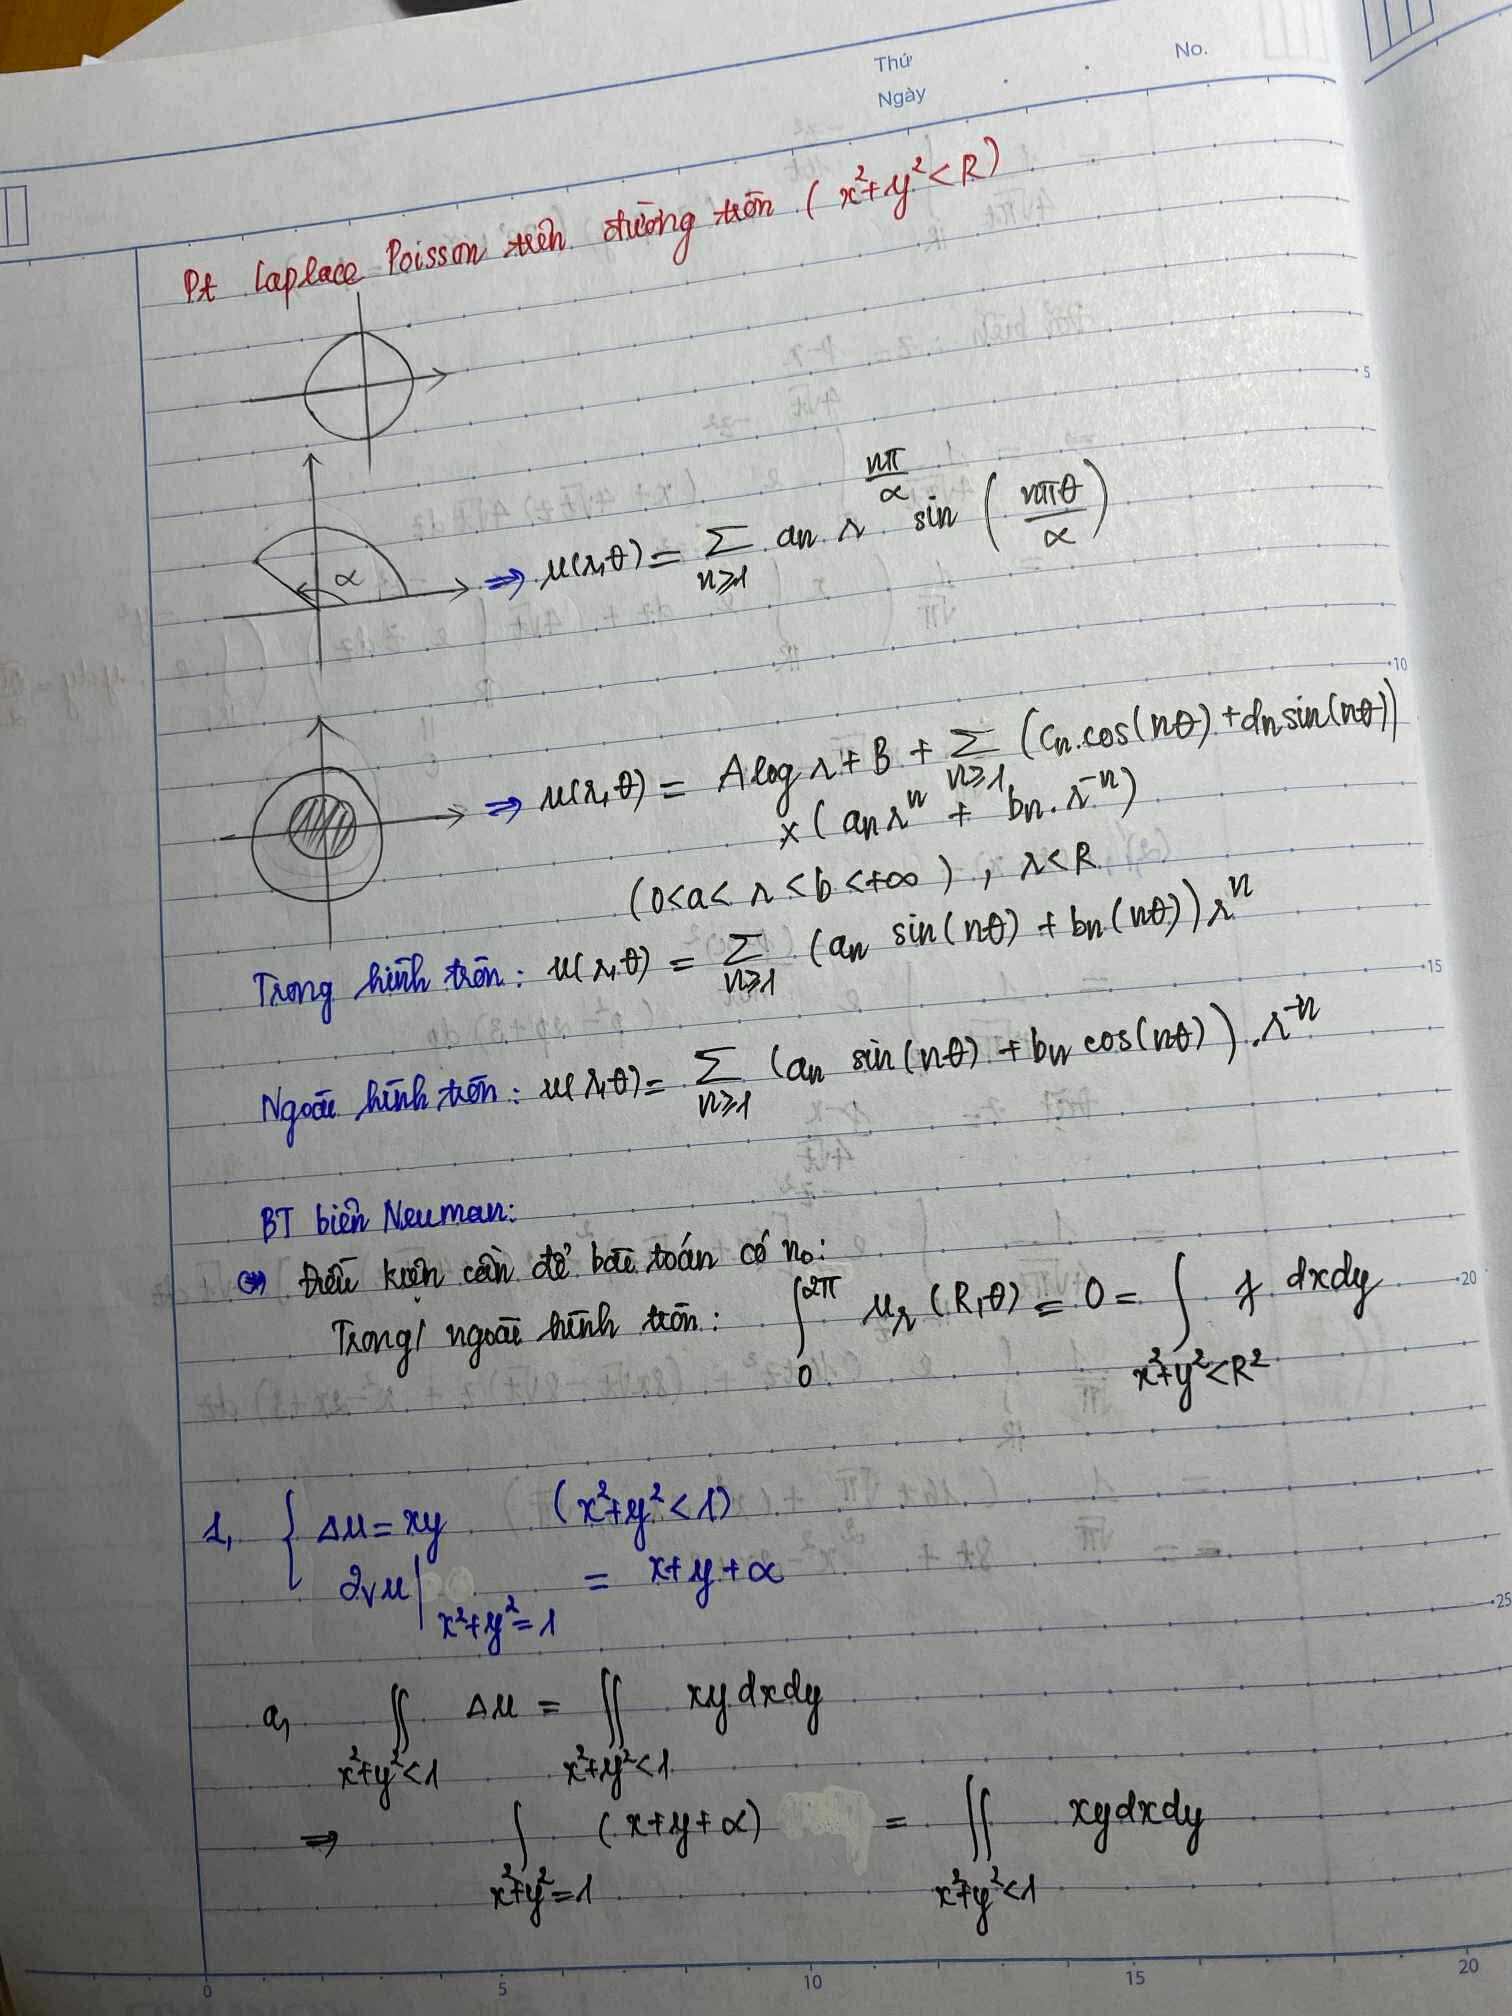 Thứ
No.
Ngày
Pt Laplace Poisson trên đường tròn (x²+y²<R)
α ⇒ u(r,θ) = Σ_{n≥1} an r^{nπ/α} sin (nπθ/α)
⇒ u(r,θ) = A log r + B + Σ_{n≥1} (cn.cos(nθ)+dnsin(nθ))
x (an r^n + bn.r^{-n})
(0<a<r<b<+∞), r<R
Trong hình tròn: u(r,θ) = Σ_{n≥1} (an sin(nθ) + bn(nθ)) r^n
Ngoài hình tròn: u(r,θ) = Σ_{n≥1} (an sin(nθ) + bn cos(nθ)).r^{-n}
BT biên Neuman:
Điều kiện cần để bài toán có no:
Trong/ ngoài hình tròn: ∫_0^{2π} u_r (R,θ) = 0 = ∫_{x²+y²<R²} f dxdy
1, { Δu = xy (x²+y²<1)
∂νu|_{x²+y²=1} = x+y+α
a, ∬_{x²+y²<1} Δu = ∬_{x²+y²<1} xy dxdy
⇒ ∫_{x²+y²=1} (x+y+α) = ∬_{x²+y²<1} xydxdy
5
10
15
20
25
0 5 10 15 20